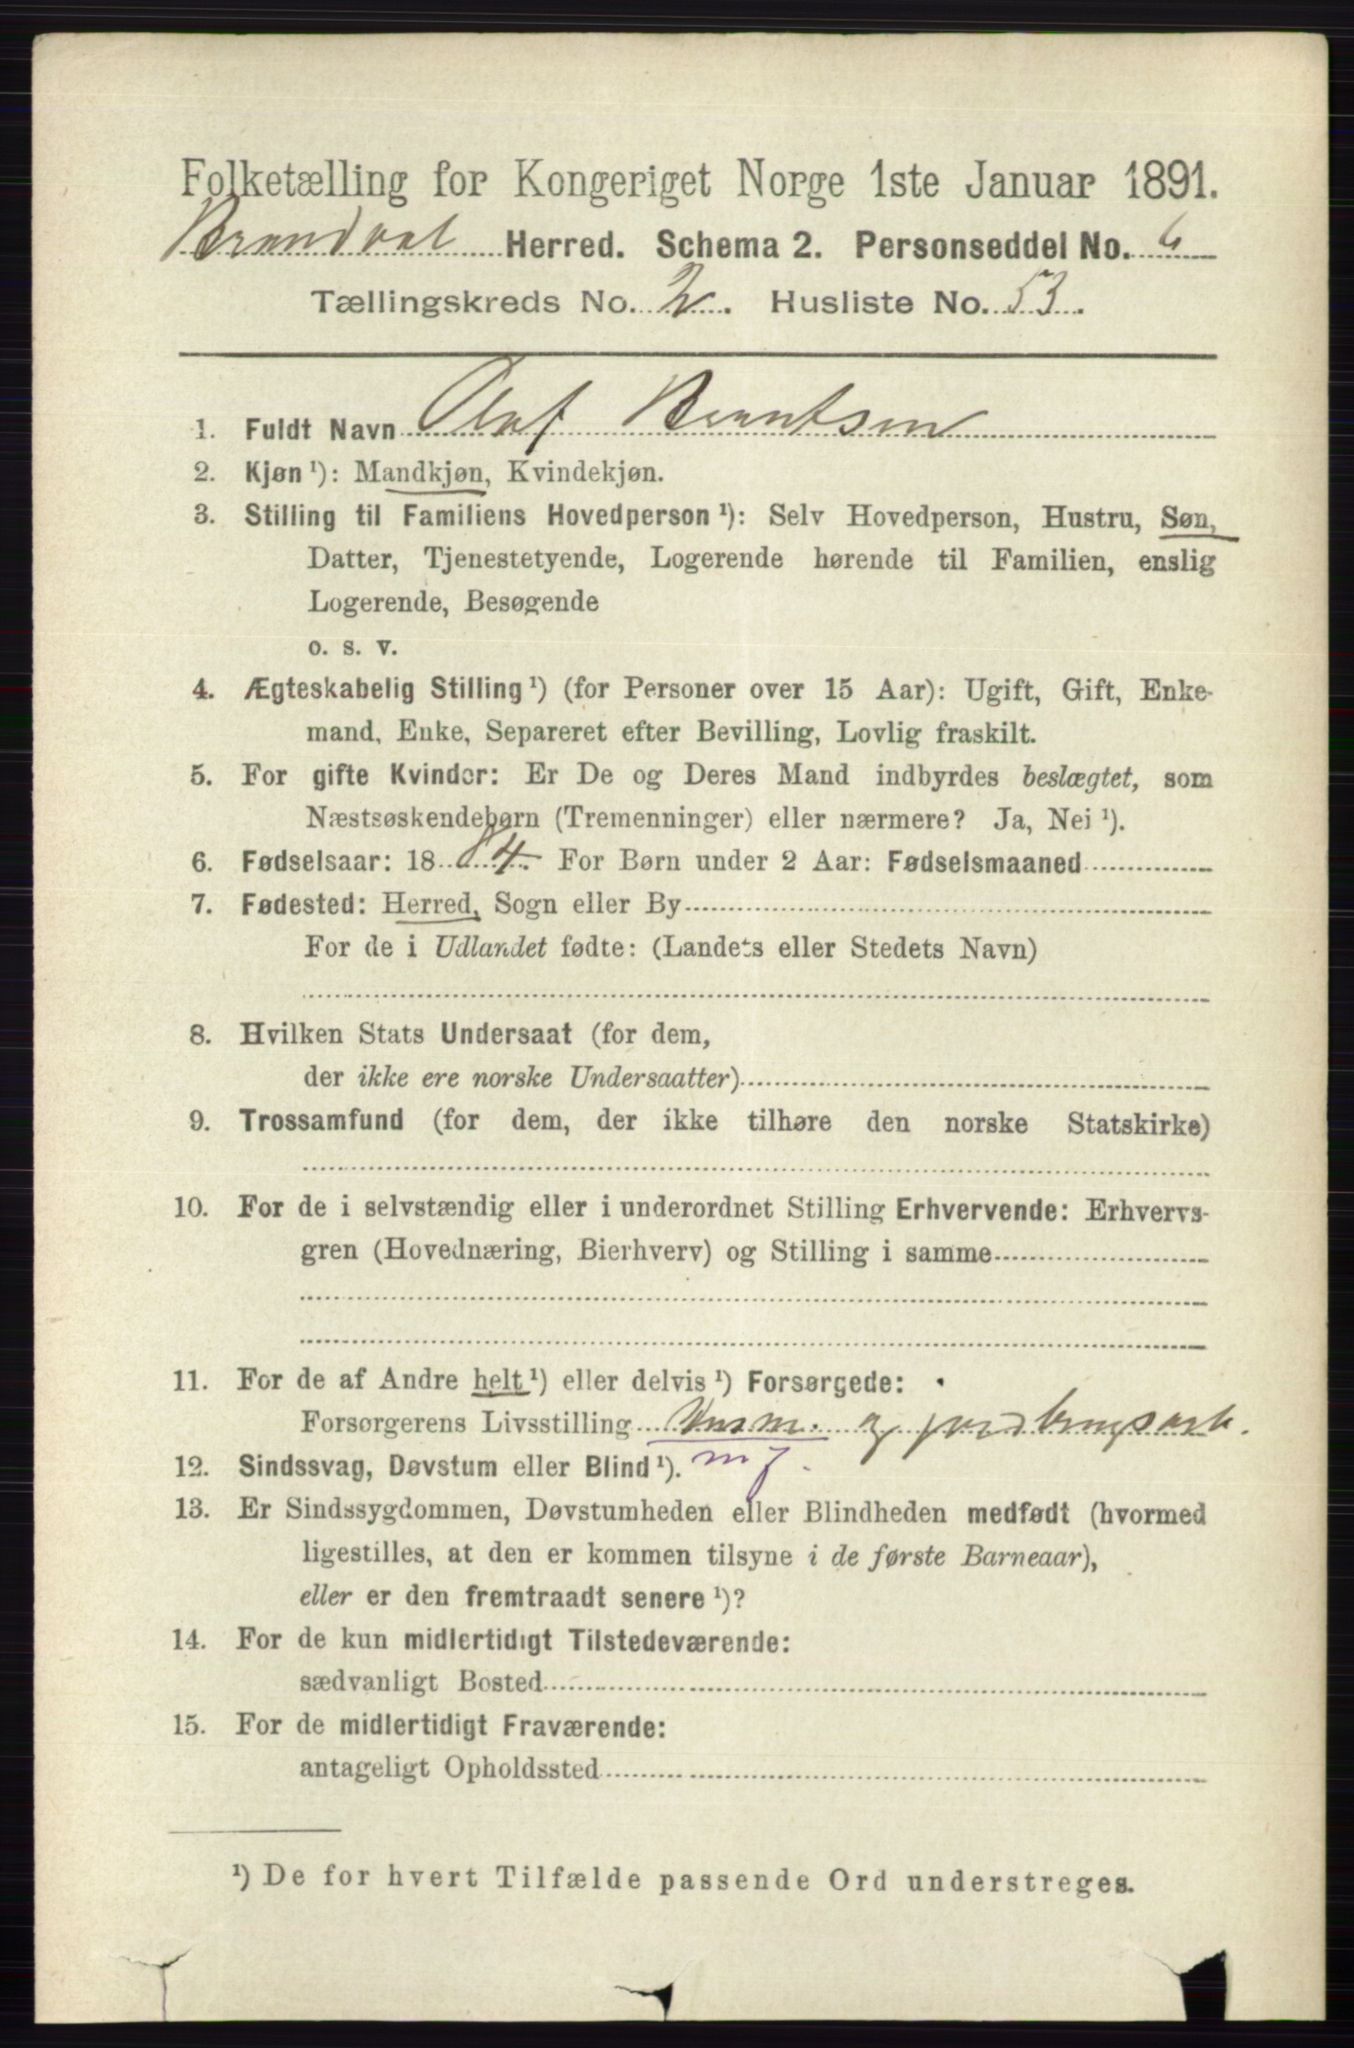 Folketælling for Kongeriget Norge 1ste Januar 1891.
Brandval Herred. Schema 2. Personseddel No. 6
Tællingskreds No. 2. Husliste No. 53.
1. Fuldt Navn Olaf Berntsen
2. Kjøn ¹): Mandkjøn, Kvindekjøn.
3. Stilling til Familiens Hovedperson ¹): Selv Hovedperson, Hustru, Søn,
Datter, Tjenestetyende, Logerende hørende til Familien, enslig
Logerende, Besøgende
o. s. v.
4. Ægteskabelig Stilling ¹) (for Personer over 15 Aar): Ugift, Gift, Enke-
mand, Enke, Separeret efter Bevilling, Lovlig fraskilt.
5. For gifte Kvinder: Er De og Deres Mand indbyrdes beslægtet, som
Næstsøskendebørn (Tremenninger) eller nærmere? Ja, Nei ¹).
6. Fødselsaar: 1884. For Børn under 2 Aar: Fødselsmaaned
7. Fødested: Herred, Sogn eller By
For de i Udlandet fødte: (Landets eller Stedets Navn)
8. Hvilken Stats Undersaat (for dem,
der ikke ere norske Undersaatter)
9. Trossamfund (for dem, der ikke tilhøre den norske Statskirke)
10. For de i selvstændig eller i underordnet Stilling Erhvervende: Erhvervs-
gren (Hovednæring, Bierhverv) og Stilling i samme
11. For de af Andre helt ¹) eller delvis ¹) Forsørgede:
Forsørgerens Livsstilling Husm. og jordbrugsarb.
12. Sindssvag, Døvstum eller Blind ¹). mj.
13. Er Sindssygdommen, Døvstumheden eller Blindheden medfødt (hvormed
ligestilles, at den er kommen tilsyne i de første Barneaar),
eller er den fremtraadt senere ¹)?
14. For de kun midlertidigt Tilstedeværende:
sædvanligt Bosted
15. For de midlertidigt Fraværende:
antageligt Opholdssted
¹) De for hvert Tilfælde passende Ord understreges.